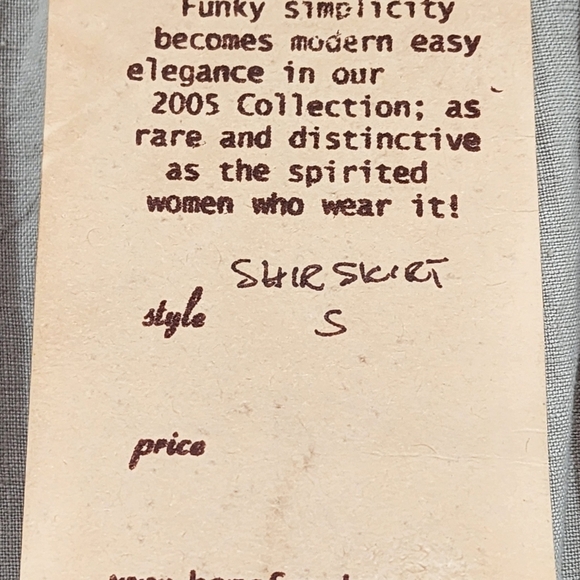 Funky simplicity
becomes modern easy
elegance in our
2005 Collection; as
rare and distinctive
as the spirited
women who wear it!
SHIRSKIRT
style S
price